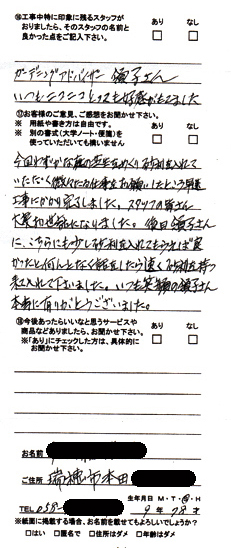 ⑯工事中特に印象に残るスタッフが
おりましたら、そのスタッフの名前と
良かった点をご記入下さい。
あり なし
ガーデニングアドバイザー 領子さん
いつもニコニコとっても好感がもてました
⑰お客様のご意見、ご感想をお聞かせ下さい。
※ 用紙や書き方は自由です。
※ 別の書式(大学ノート・便箋)を
使っていただいても構いません
あり なし
今回わずかな庭の芝生をめくり砂利を入れて
いただく
工事にかかり完了しました。スタッフの皆さん
大変お世話になりました。後日領子さん
に、こちらにも少し砂利を入れてもらえば良
かったと何となく話をしたら速く砂利を持っ
来て入れて下さいました。いつも笑顔の領子さん
本当に有りがとうございました。
⑱今後あったらいいなと思うサービスや
商品などありましたら、お聞かせ下さい。
※「あり」にチェックした方は、具体的に
お聞かせ下さい。
あり なし
お名前
ご住所 瑞穂市本田
生年月日 M・T・S・H
TEL 058- 9年 28才
※紙面に掲載する場合、お名前を載せてもよろしいでしょうか?
□はい □匿名で □住所はダメ □年齢はダメ